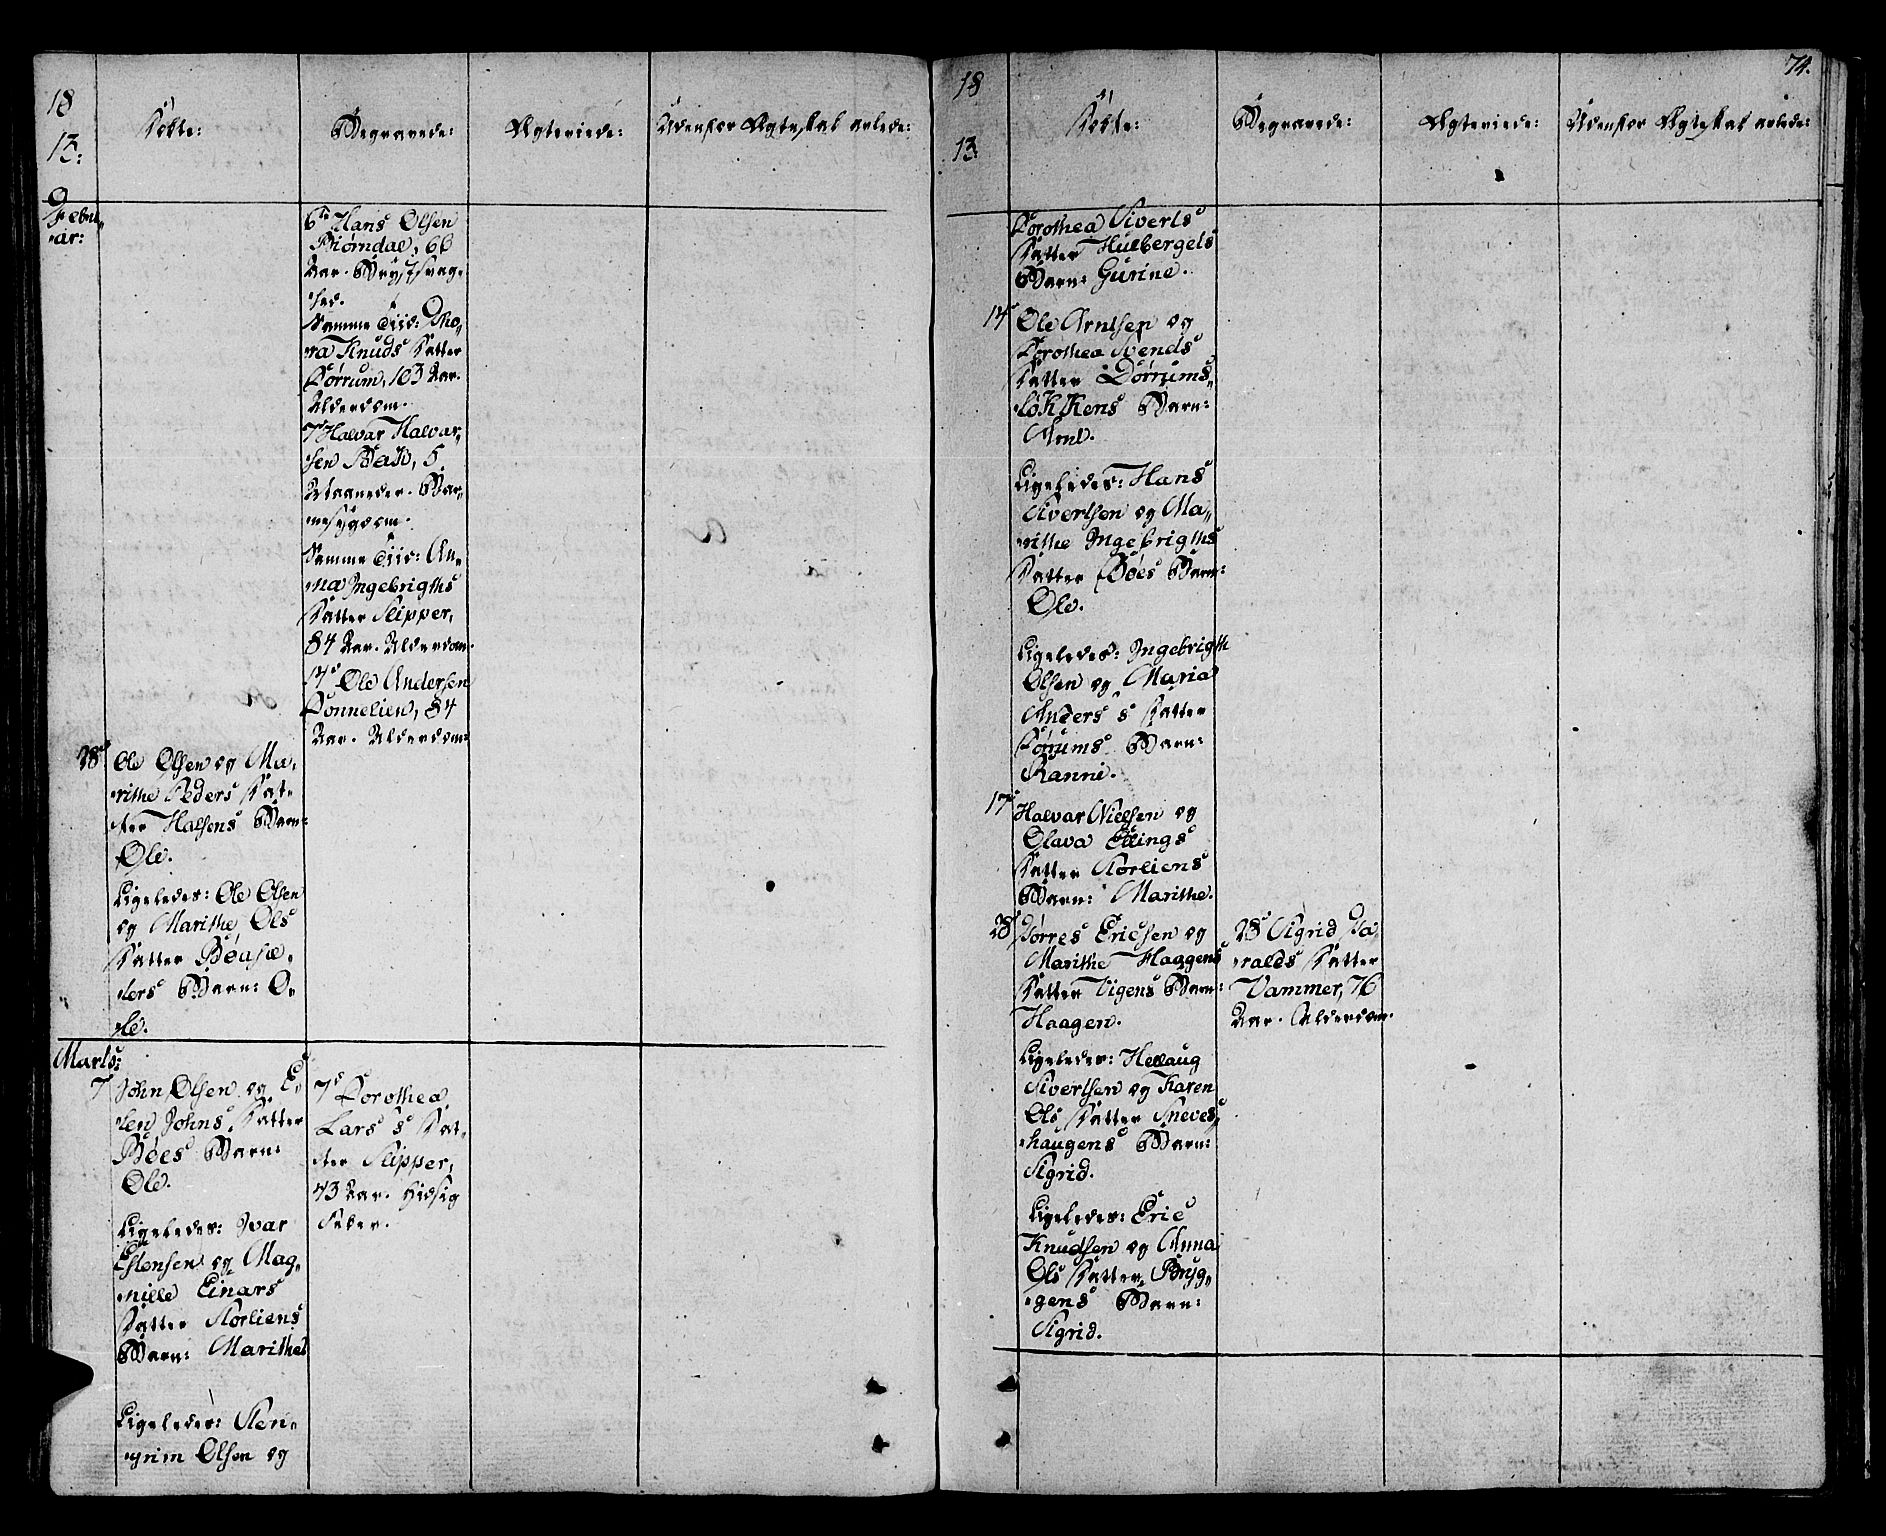 18
13:
Døbte:
Begravede:
Ægteviede:
Udenfor Ægteskab avlede:
Februar
-ar:
6te Hans Olsen
Biørndal, 66
Aar. Brystsvag-
hed.
Samme Tiid: Tho-
ra Knuds Datter
Dørrum, 103 Aar.
Alderdom.
7d Halvar Halvar-
sen Bak, 5
Maaneder. Bar-
nesygdom.
Samme Tiid: An-
na Ingebrigths
Datter Slipper,
84 Aar. Alderdom.
14d Ole Andersen
Donnelien, 84
Aar. Alderdom:
28d Ole Olsen og Ma-
rithe Peders Dat-
ter Halsens Barn:
Ole.
Ligeledes: Ole Olsen
og Marithe Ols
Datter
Barn: O-
le.
Marts:
7 John Olsen og E-
len Johns Datter
Bøes Barn:
Ole.
Ligeledes: Ivar
Estensen og Mag-
nille Einars
Datter Storliens
Barn: Marithe
Ligeledes: Sten-
grim Olsen og
7d Dorothea
Lars s Dat-
ter Slipper,
43 Aar. Hidsig
Feber.
74.
18
13:
Døbte:
Begravede:
Ægteviede:
Udenfor Ægteskab avlede:
Dorothea Siverts
Datter Hulbergets
Barn: Gurine.
14d Ole Arntsen og
Dorothea Svends
Datter Dørrums-
løkkens Barn:
Arnt.
Ligeledes: Hans
Sivertsen og Ma-
rithe Ingebrigths
Datter Bøes Barn:
Ole.
Ligeledes: Ingebrigth
Olsen og Maria
Anders s Datter
Dørrums Barn:
Ranni.
17d Halvar Nielsen og
Olava Ellings
Datter Storliens
Barn: Marithe.
28d Tørres Ericsen og
Marithe Haagens
Datter Vigens Barn:
Haagen.
Ligeledes: Hellaug
Sivertsen og Karen
Ols Datter Sneves-
haugens Barn:
Sigrid.
Ligeledes: Eric
Knudsen og Anna
Ols Datter Bryg-
gens Barn:
Sigrid.
28d Sigrid Ha-
ralds Datter
Vammer, 76
Aar. Alderdom.